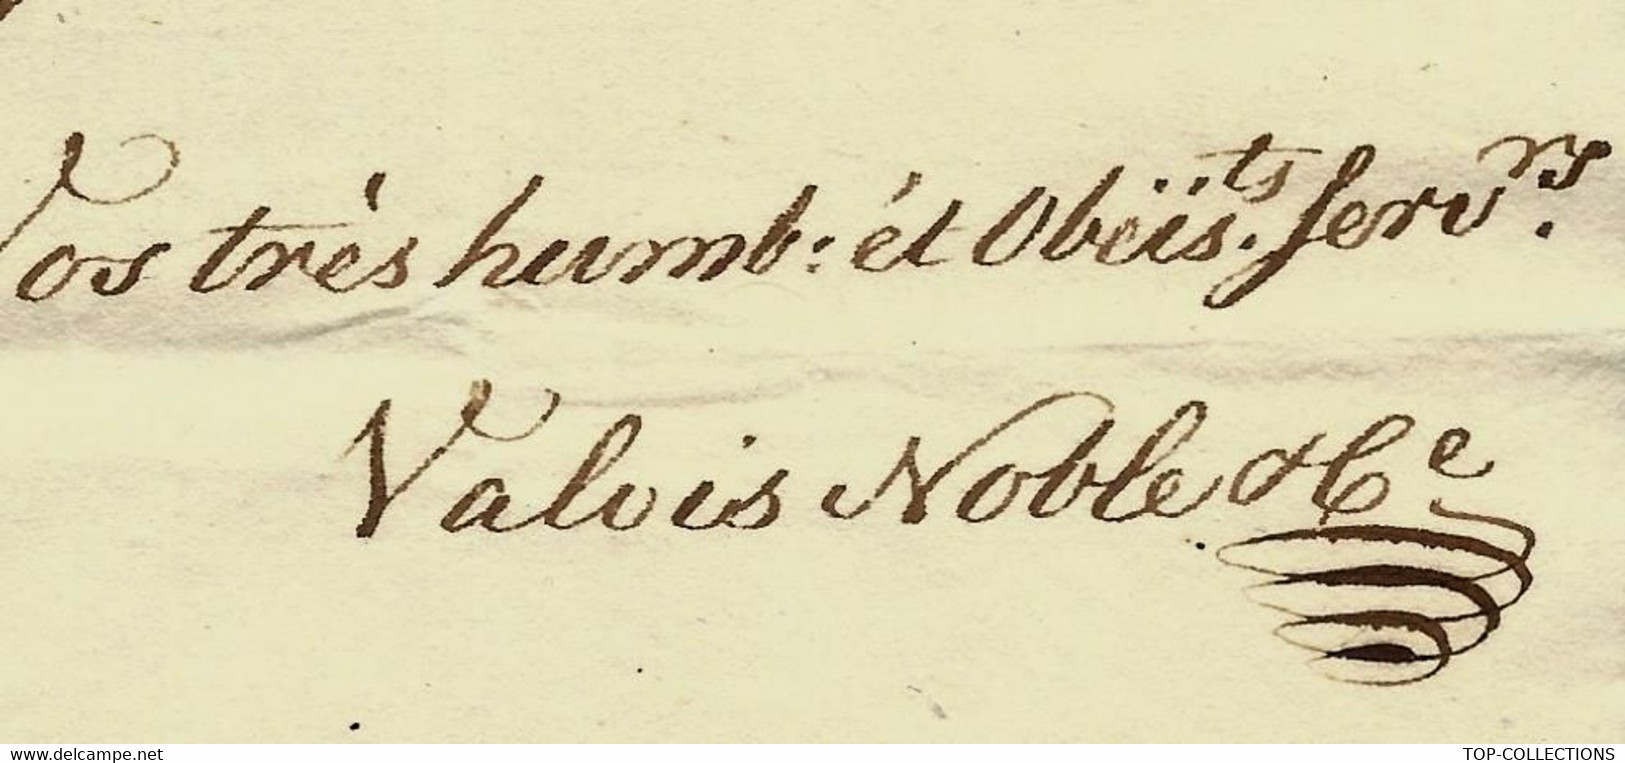 Vos très humb: ét Obëïs.ts serv.rs
Valois Noble & Ce
www.delcampe.net
TOP-COLLECTIONS